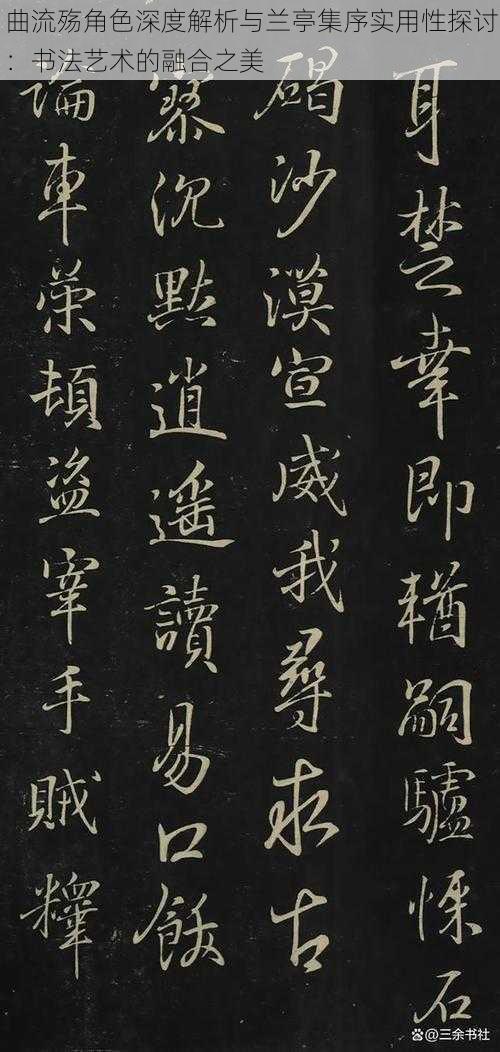 曲流殇角色深度解析与兰亭集序实用性探讨
：书法艺术的融合之美
耳楚幸即輶嗣驢慄石
碣沙漠宣威我尋求古
寮沉默逍遥讀易口飯
論車荣頓盗宰手賊釋
@三余书社